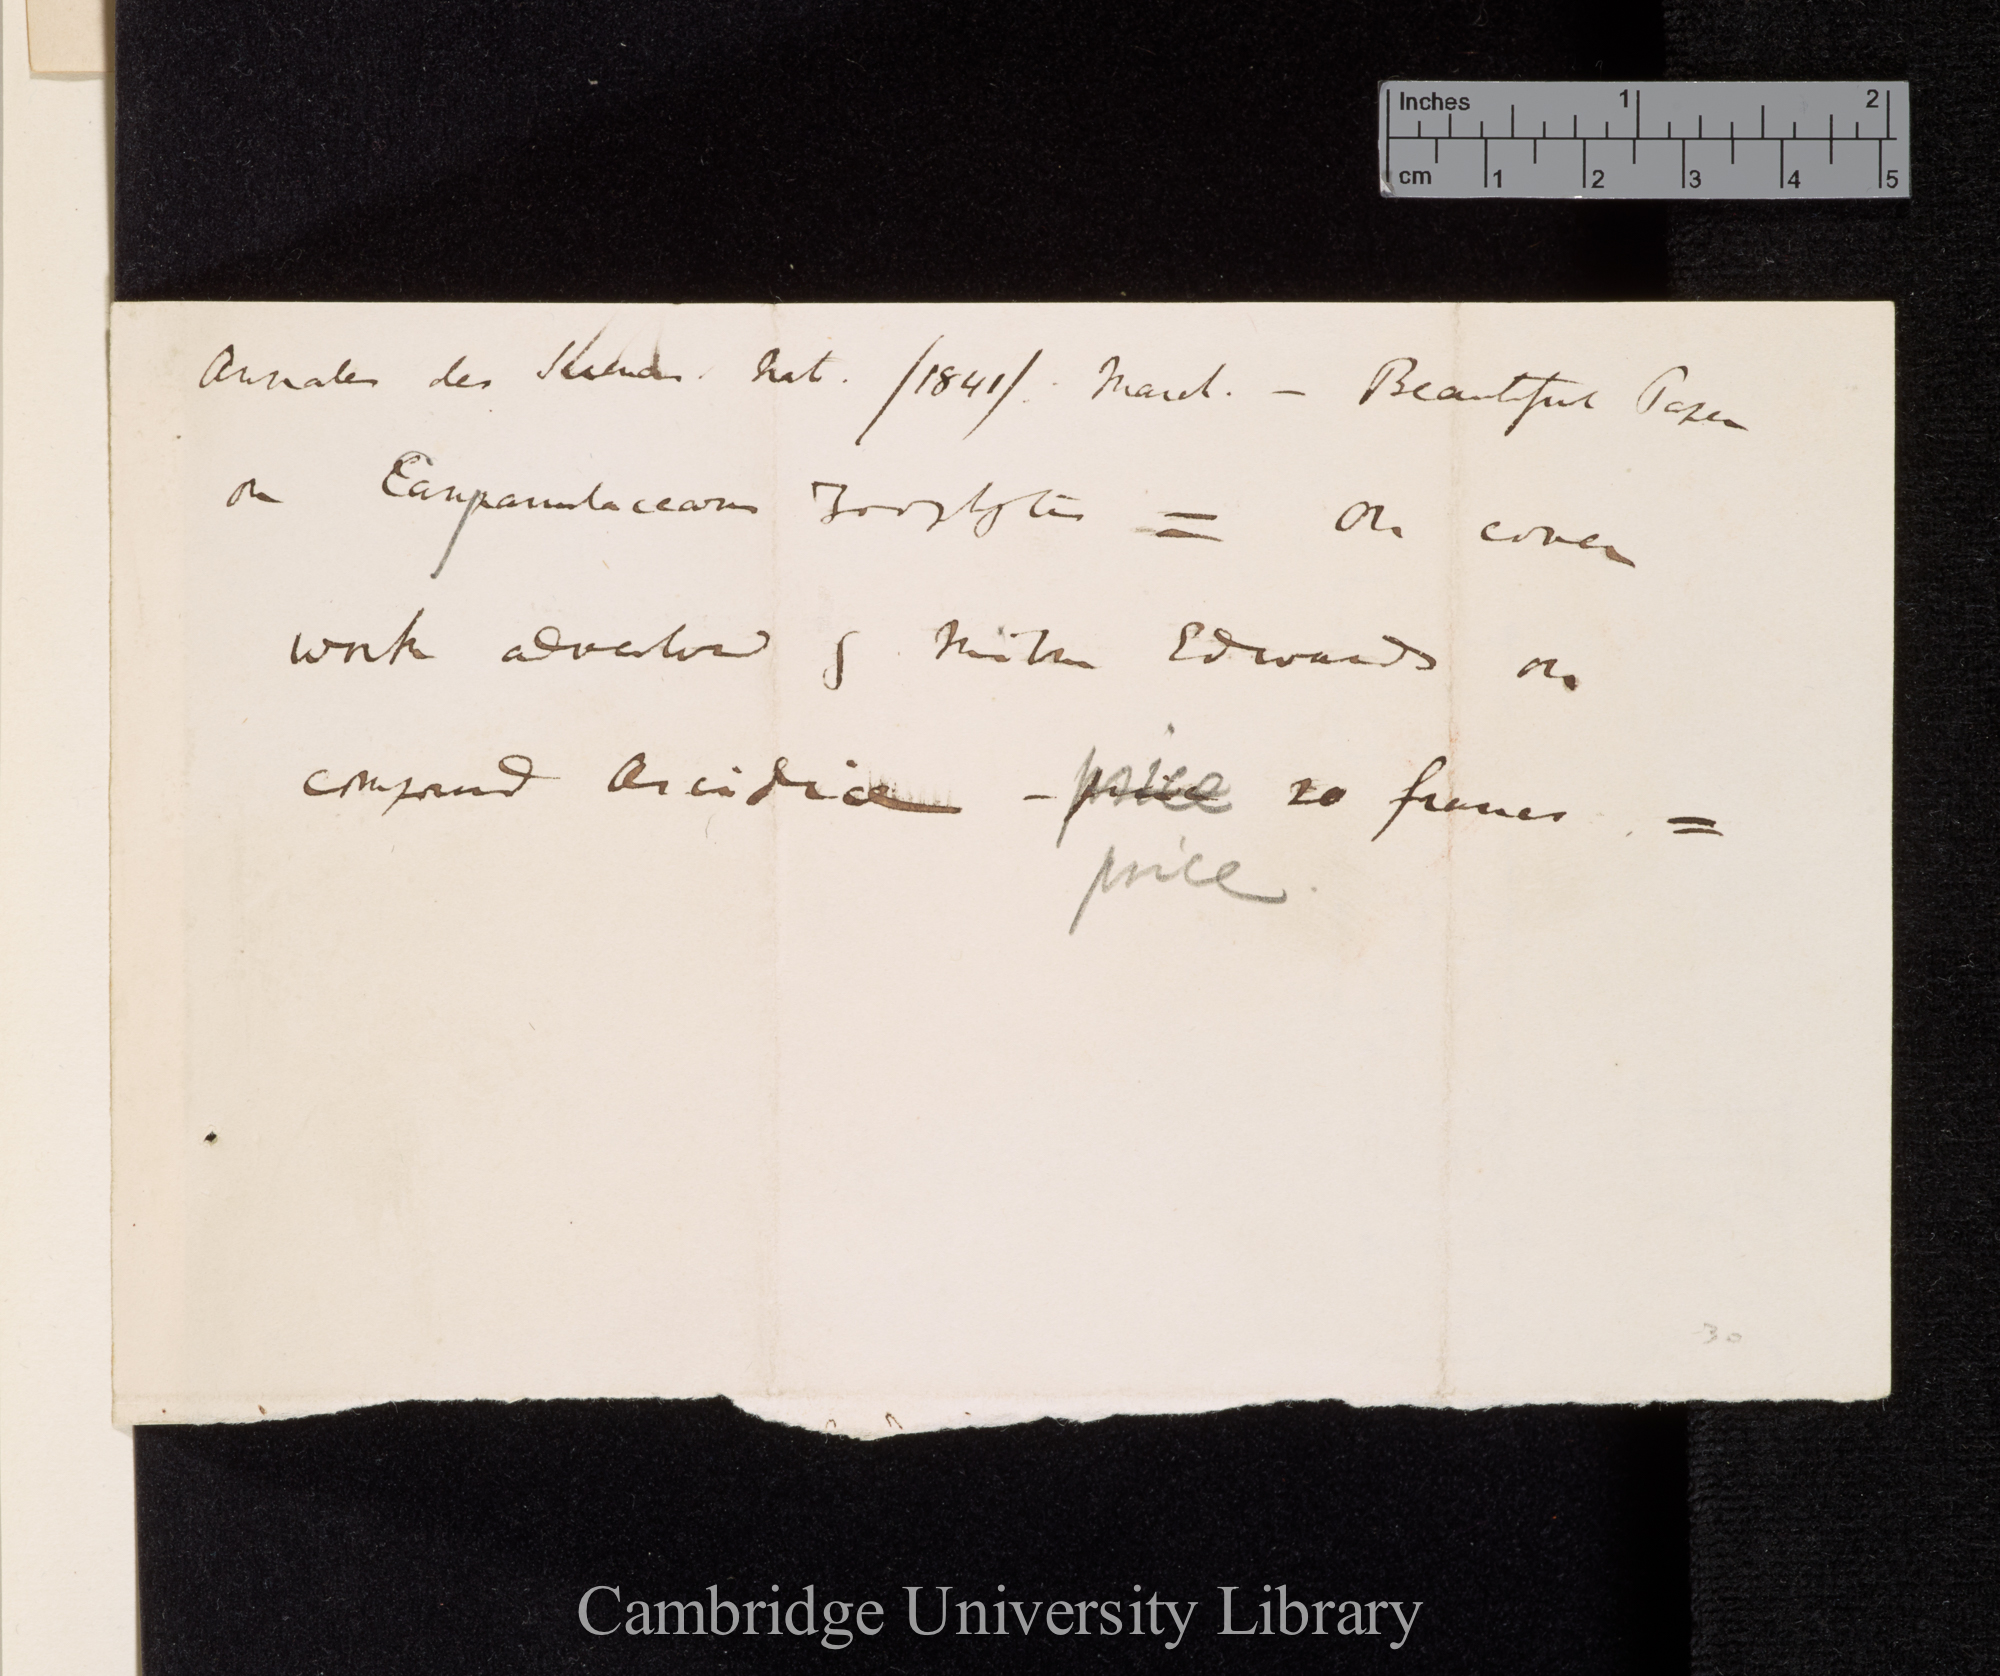 Inches 1 2
cm 1 2 3 4 5
Annales des Sciences. Nat. /1841/. March. — Beautiful Paper
on Campanulaceous Zoophytes = On cover
work advertised of Milne Edwards on
compound Ascidiæ — price 20 francs =
price
30
Cambridge University Library